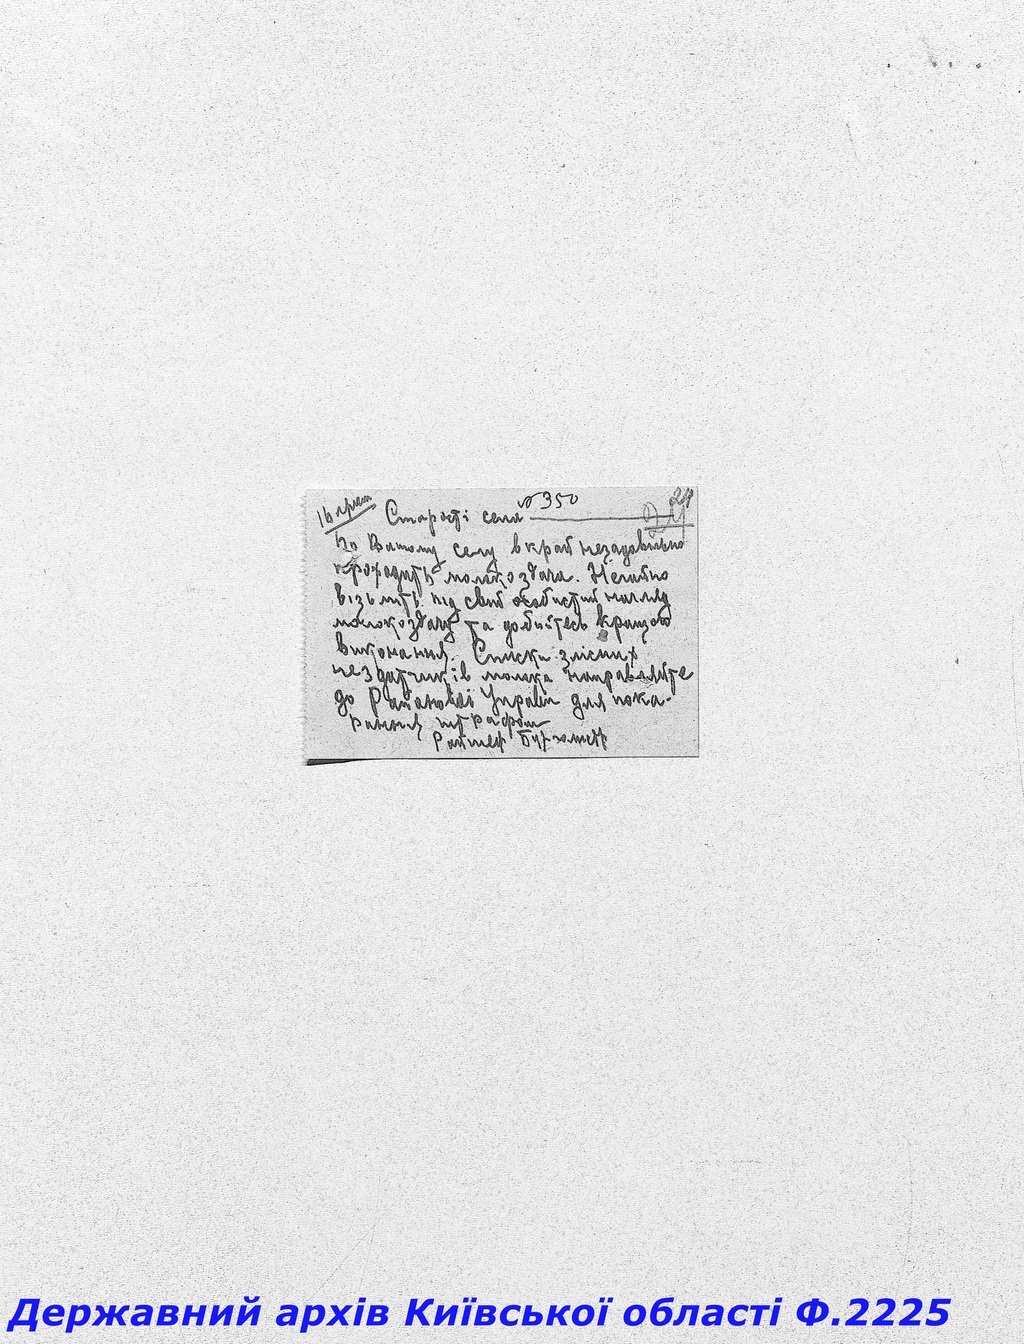 № 350
24
16 прим
Старості села
По Вашому селу вкрай незадовільно
проходить молокоздача. Негайно
візьміть під свій особистий нагляд
молокоздачу та добийтесь кращого
виконання. Списки злісних
нездатчиків молока направляйте
до Районової Управи для пока-
рання штрафом
Державний архів Київської області Ф.2225